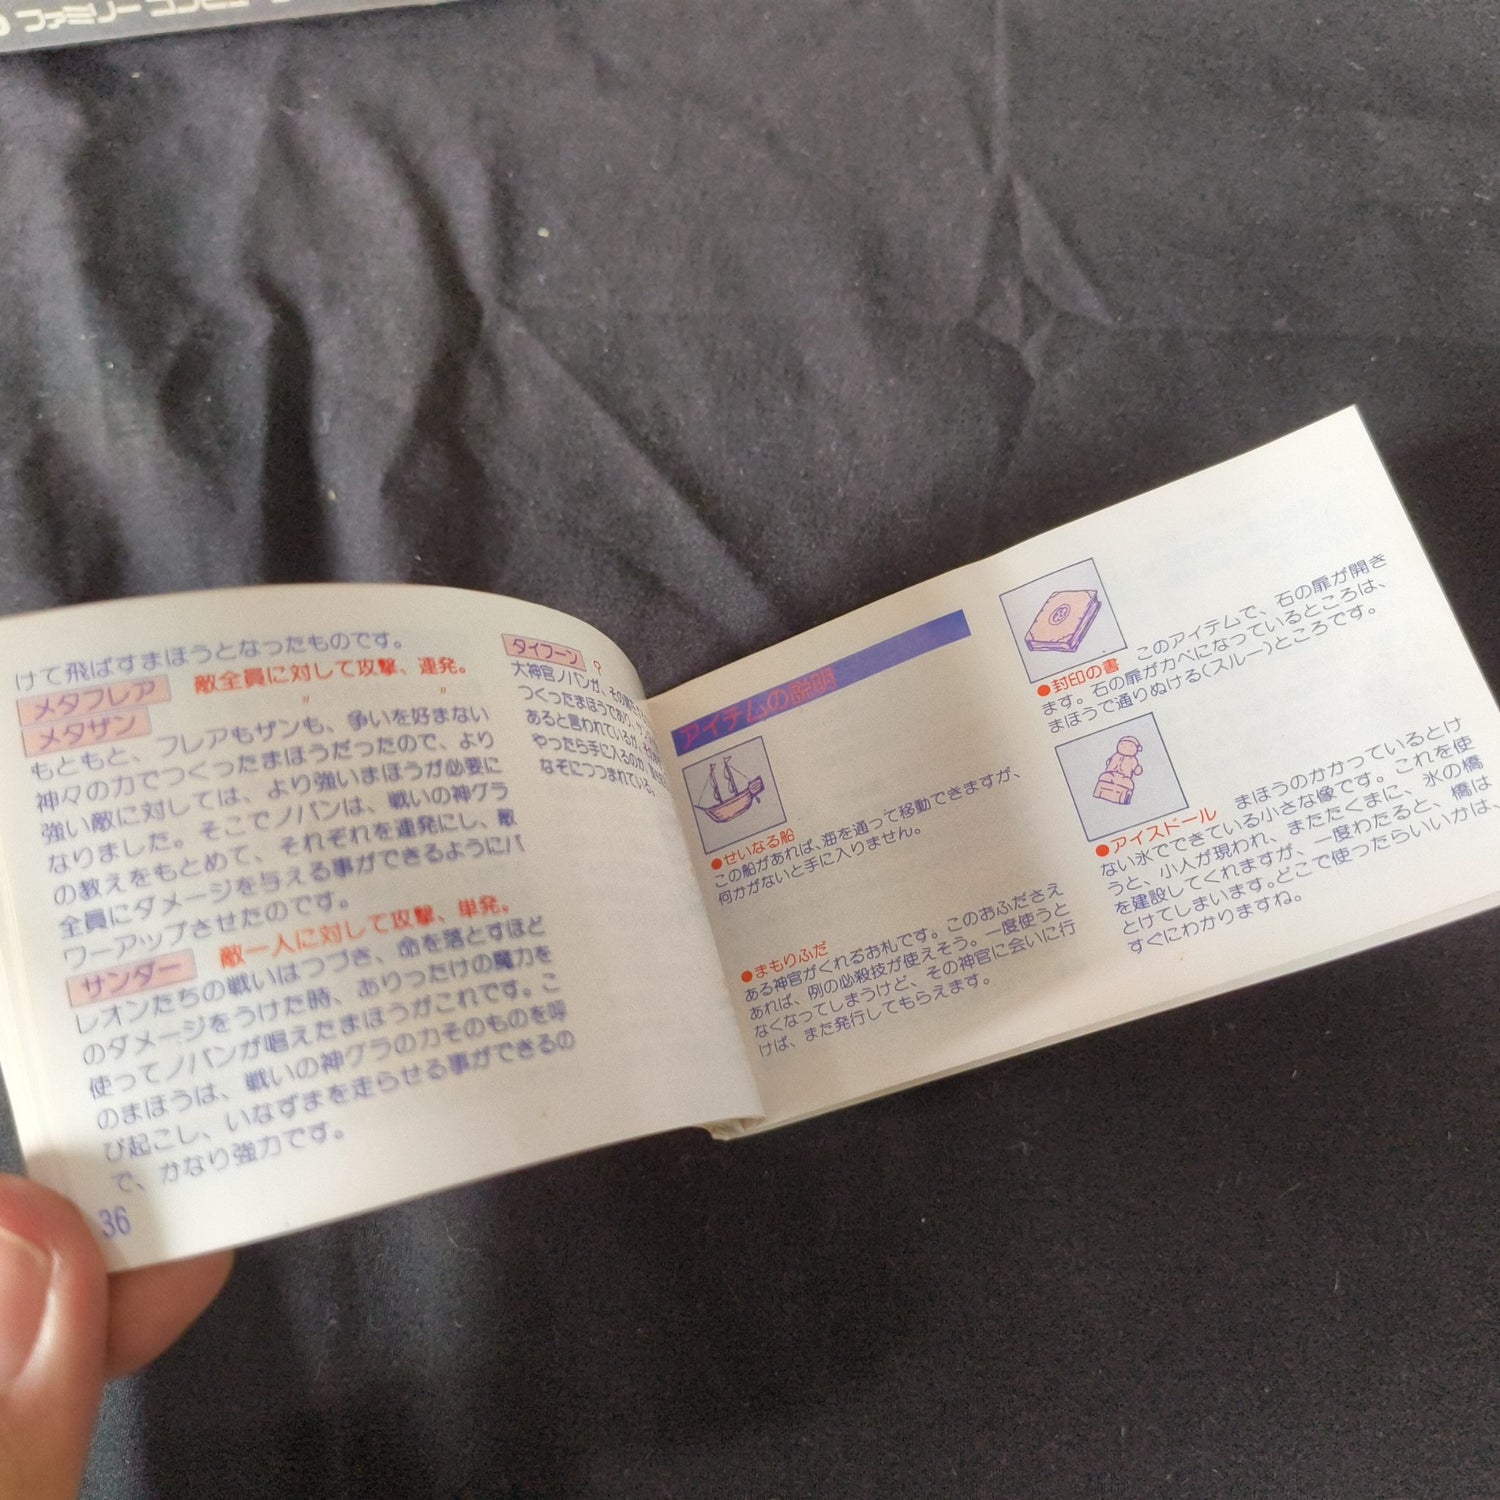 ファミリー コンピュ
けて飛ばすまほうとなったものです。
メタフレア 敵全員に対して攻撃、連発。
メタザン 〃 〃
もともと、フレアもザンも、争いを好まない
神々の力でつくったまほうだったので、より
強い敵に対しては、より強いまほうが必要に
なりました。そこでノバンは、戦いの神グラ
の教えをもとめて、それぞれを連発にし、敵
全員にダメージを与える事ができるようにパ
ワーアップさせたのです。
サンダー 敵一人に対して攻撃、単発。
レオンたちの戦いはつづき、命を落とすほど
のダメージをうけた時、ありったけの魔力を
使ってノバンが唱えたまほうがこれです。こ
のまほうは、戦いの神グラの力そのものを呼
び起こし、いなずまを走らせる事ができるの
で、かなり強力です。
36
タイフーン ?
大神官ノバンが、その
つくったまほうであり、
あると言われているが、
やったら手に入るのか、
なぞにつつまれている。
アイテムの説明
●せいなる船
この船があれば、海を通って移動できますが、
何かがないと手に入りません。
●まもりふだ
ある神官がくれるお札です。このおふださえ
あれば、例の必殺技が使えそう。一度使うと
なくなってしまうけど、その神官に会いに行
けば、また発行してもらえます。
●封印の書 このアイテムで、石の扉が開き
ます。石の扉がカベになっているところは、
まほうで通りぬける(スルー)ところです。
●アイスドール まほうのかかっているとけ
ない氷でできている小さな像です。これを使
うと、小人が現われ、またたくまに、氷の橋
を建設してくれますが、一度わたると、橋は
とけてしまいます。どこで使ったらいいかは、
すぐにわかりますね。